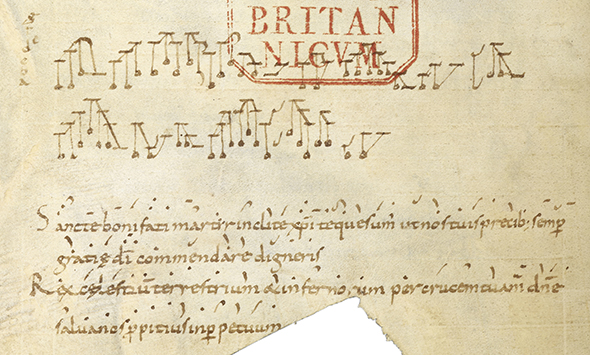 BRITAN
NICVM
Sancte bonifati martir inclite xp̄i te quesum̄ ut nos tuis precib; semp̄
gratię dī commendare digneris
Rex cęlestiū terrestrium ac infernorum per crucem tuam dn̄e
salva nos p̄pitius in p̄petuum